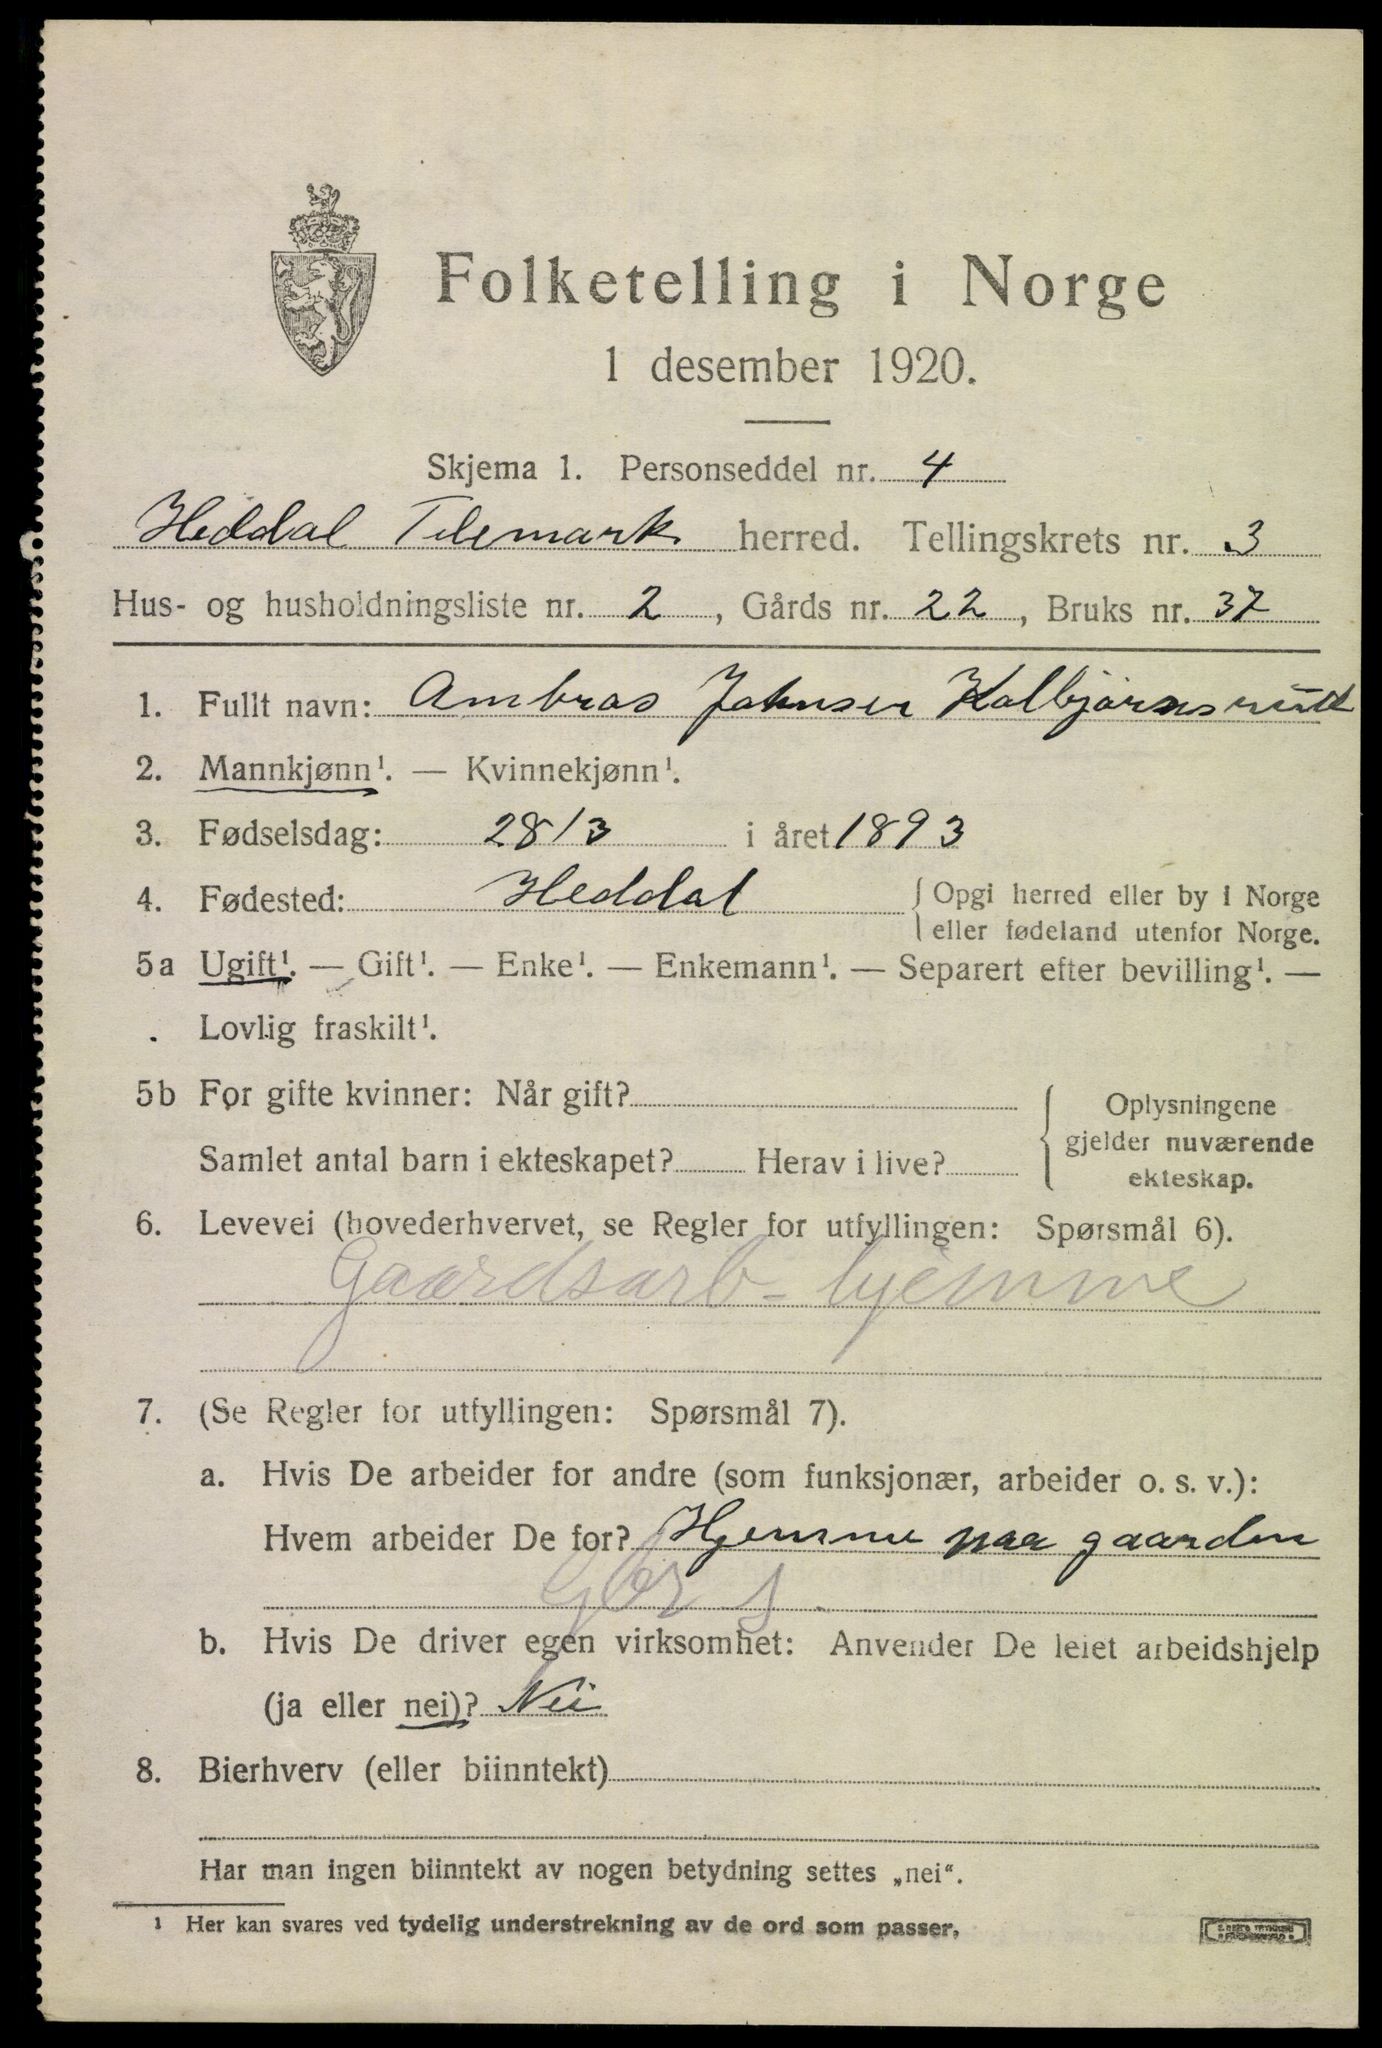 Folketelling i Norge
1 desember 1920.
Skjema 1. Personseddel nr. 4
Heddal Telemark herred. Tellingskrets nr. 3
Hus- og husholdningsliste nr. 2, Gårds nr. 22, Bruks nr. 37
1. Fullt navn: Ambros Johnsen Kolbjørnsrud
2. Mannkjønn¹. — Kvinnekjønn¹.
3. Fødselsdag: 28/3 i året 1893
4. Fødested: Heddal { Opgi herred eller by i Norge
eller fødeland utenfor Norge.
5a Ugift¹. — Gift¹. — Enke¹. — Enkemann¹. — Separert efter bevilling¹. —
Lovlig fraskilt¹.
5b For gifte kvinner: Når gift?
Samlet antal barn i ekteskapet? Herav i live?
Oplysningene
gjelder nuværende
ekteskap.
6. Levevei (hovederhvervet, se Regler for utfyllingen: Spørsmål 6).
Gaardsarb - hjemme
7. (Se Regler for utfyllingen: Spørsmål 7).
a. Hvis De arbeider for andre (som funksjonær, arbeider o. s. v.):
Hvem arbeider De for? Hjemme paa gaarden
b. Hvis De driver egen virksomhet: Anvender De leiet arbeidshjelp
(ja eller nei)? Nei
8. Bierhverv (eller biinntekt)
Har man ingen biinntekt av nogen betydning settes „nei“.
¹ Her kan svares ved tydelig understrekning av de ord som passer.